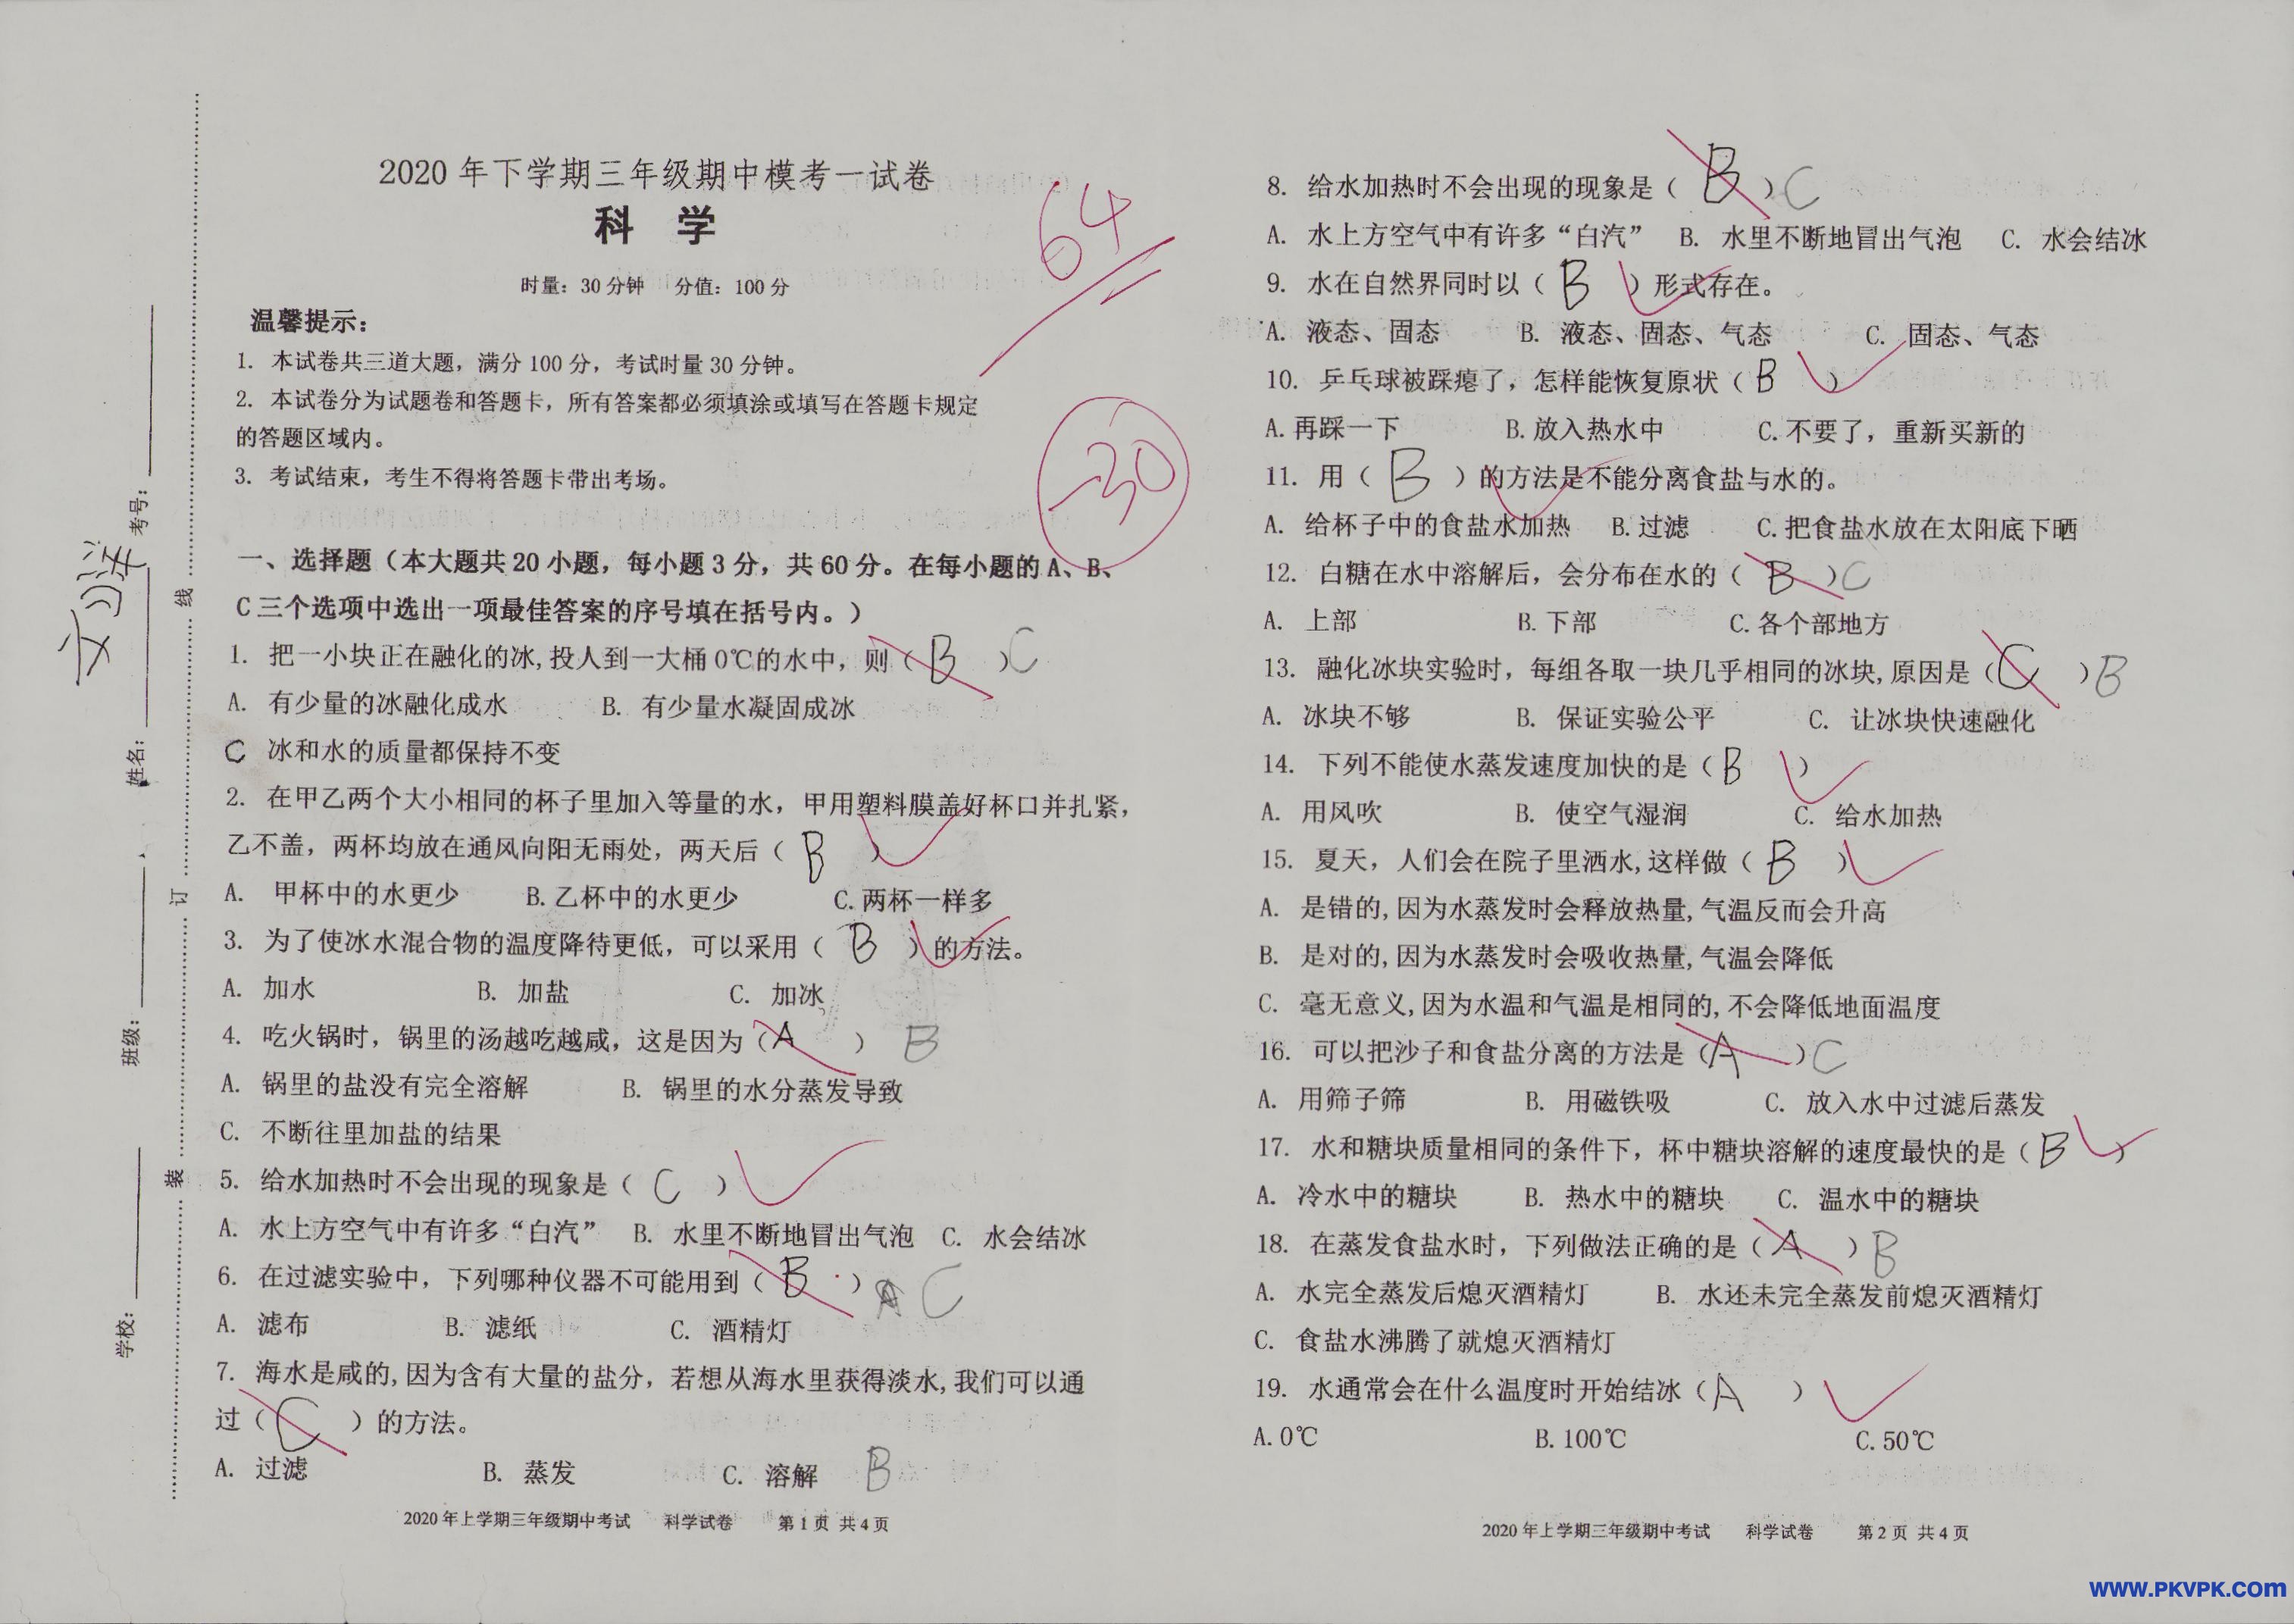 2020年下学期三年级期中模考一试卷
科 学
时量：30分钟 分值：100分
64
温馨提示：
1. 本试卷共三道大题，满分100分，考试时量30分钟。
2. 本试卷分为试题卷和答题卡，所有答案都必须填涂或填写在答题卡规定
的答题区域内。
3. 考试结束，考生不得将答题卡带出考场。
-30
一、选择题（本大题共20小题，每小题3分，共60分。在每小题的A、B、
C三个选项中选出一项最佳答案的序号填在括号内。）
1. 把一小块正在融化的冰,投人到一大桶0℃的水中，则（ B ）C
A. 有少量的冰融化成水 B. 有少量水凝固成冰
C 冰和水的质量都保持不变
2. 在甲乙两个大小相同的杯子里加入等量的水，甲用塑料膜盖好杯口并扎紧，
乙不盖，两杯均放在通风向阳无雨处，两天后（ B ）
A. 甲杯中的水更少 B.乙杯中的水更少 C.两杯一样多
3. 为了使冰水混合物的温度降待更低，可以采用（ B ）的方法。
A. 加水 B. 加盐 C. 加冰
4. 吃火锅时，锅里的汤越吃越咸，这是因为（A ） B
A. 锅里的盐没有完全溶解 B. 锅里的水分蒸发导致
C. 不断往里加盐的结果
5. 给水加热时不会出现的现象是（ C ）
A. 水上方空气中有许多“白汽” B. 水里不断地冒出气泡 C. 水会结冰
6. 在过滤实验中，下列哪种仪器不可能用到（ B ）A C
A. 滤布 B. 滤纸 C. 酒精灯
7. 海水是咸的,因为含有大量的盐分，若想从海水里获得淡水,我们可以通
过（ C ）的方法。
A. 过滤 B. 蒸发 C. 溶解 B
2020年上学期三年级期中考试 科学试卷 第1页 共4页
学校： 班级： 姓名： 考号：
装 订 线
8. 给水加热时不会出现的现象是（ B ）C
A. 水上方空气中有许多“白汽” B. 水里不断地冒出气泡 C. 水会结冰
9. 水在自然界同时以（ B ）形式存在。
A. 液态、固态 B. 液态、固态、气态 C. 固态、气态
10. 乒乓球被踩瘪了，怎样能恢复原状（ B ）
A.再踩一下 B.放入热水中 C.不要了，重新买新的
11. 用（ B ）的方法是不能分离食盐与水的。
A. 给杯子中的食盐水加热 B.过滤 C.把食盐水放在太阳底下晒
12. 白糖在水中溶解后，会分布在水的（ B ）C
A. 上部 B.下部 C.各个部地方
13. 融化冰块实验时，每组各取一块几乎相同的冰块,原因是（C ）B
A. 冰块不够 B. 保证实验公平 C. 让冰块快速融化
14. 下列不能使水蒸发速度加快的是（B ）
A. 用风吹 B. 使空气湿润 C. 给水加热
15. 夏天，人们会在院子里洒水,这样做（ B ）
A. 是错的,因为水蒸发时会释放热量,气温反而会升高
B. 是对的,因为水蒸发时会吸收热量,气温会降低
C. 毫无意义,因为水温和气温是相同的,不会降低地面温度
16. 可以把沙子和食盐分离的方法是（A ）C
A. 用筛子筛 B. 用磁铁吸 C. 放入水中过滤后蒸发
17. 水和糖块质量相同的条件下，杯中糖块溶解的速度最快的是（ B ）
A. 冷水中的糖块 B. 热水中的糖块 C. 温水中的糖块
18. 在蒸发食盐水时，下列做法正确的是（ A ）B
A. 水完全蒸发后熄灭酒精灯 B. 水还未完全蒸发前熄灭酒精灯
C. 食盐水沸腾了就熄灭酒精灯
19. 水通常会在什么温度时开始结冰（ A ）
A.0℃ B.100℃ C.50℃
2020年上学期三年级期中考试 科学试卷 第2页 共4页
www.PKVPK.com